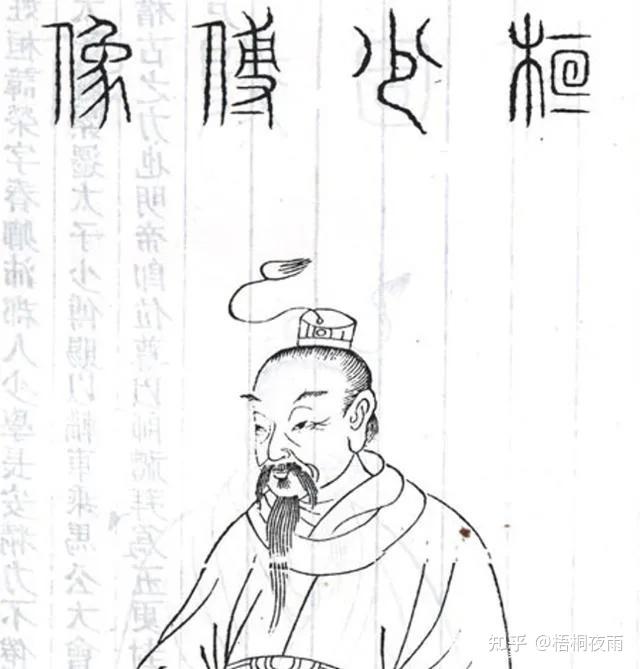 桓少傅像
姓桓諱榮字春卿沛郡人少學長安精力不倦
遷太子少傅賜以輜車乘馬公大會
稽古之力也明帝即位尊以師禮拜為五更封
知乎 @梧桐夜雨